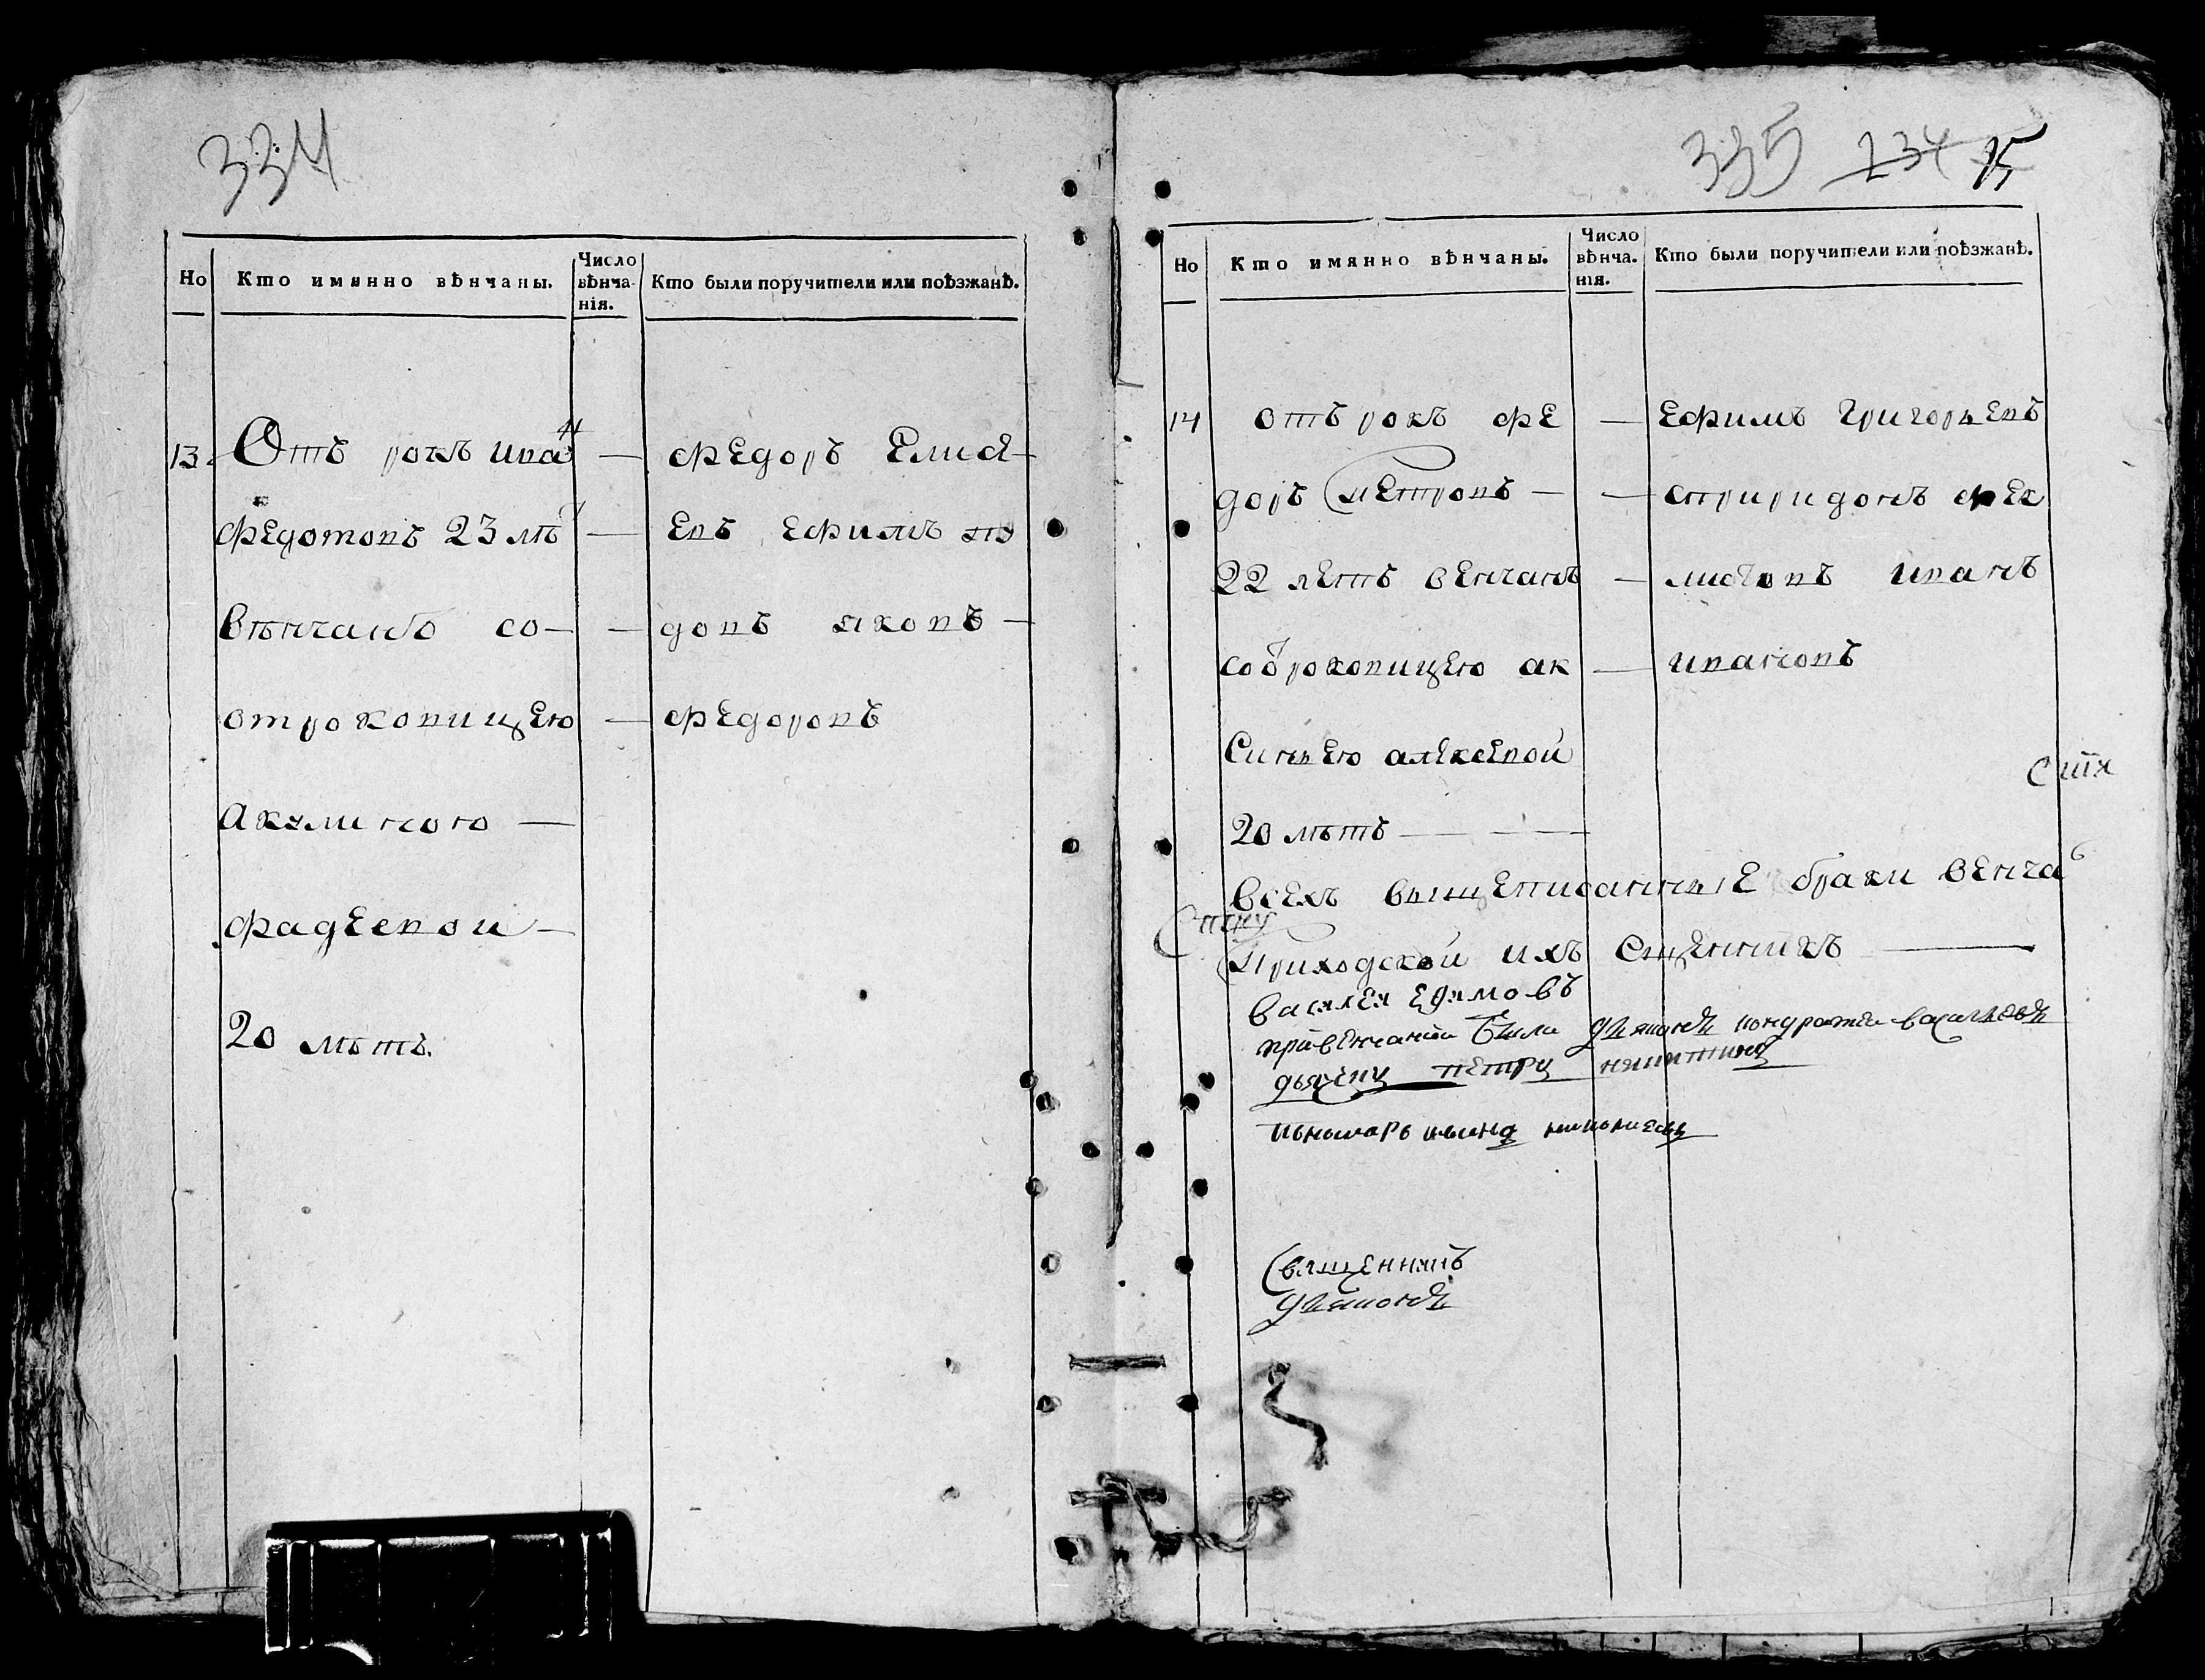 334
Но
Кто имянно вѣнчаны.
Число вѣнча-нія.
Кто были поручители или поѣзжанѣ.
13
Отъ рокъ ива н
федотовъ 23 лѣт
вѣнчанъ со —
отроковицею
Акулиною —
фадеевой —
20 лѣтъ.
— федоръ Елис —
— евъ ефимъ
— довъ яковъ —
— федоровъ
335 234 15
Но
Кто имянно вѣнчаны.
Число вѣнча. нія.
Кто были поручители или поѣзжанѣ.
14
отъ рокъ фе
доръ петровъ —
22 летъ венчанъ
сотроковицею ак
синьею алексевой
20 лѣтъ —
— ефимъ григорьевъ
— спиридонъ фек
— листовъ иванъ
— ивановъ
всехъ вышеписанные браки венча
приходской ихъ сщенникъ
василей ефимовъ
при венчании были диаконъ кондратей васильевъ
дьячекъ петръ никитинъ
Священникъ
диаконъ